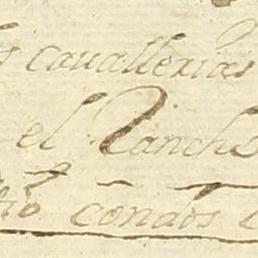 cauallerias
el Rancho
condos